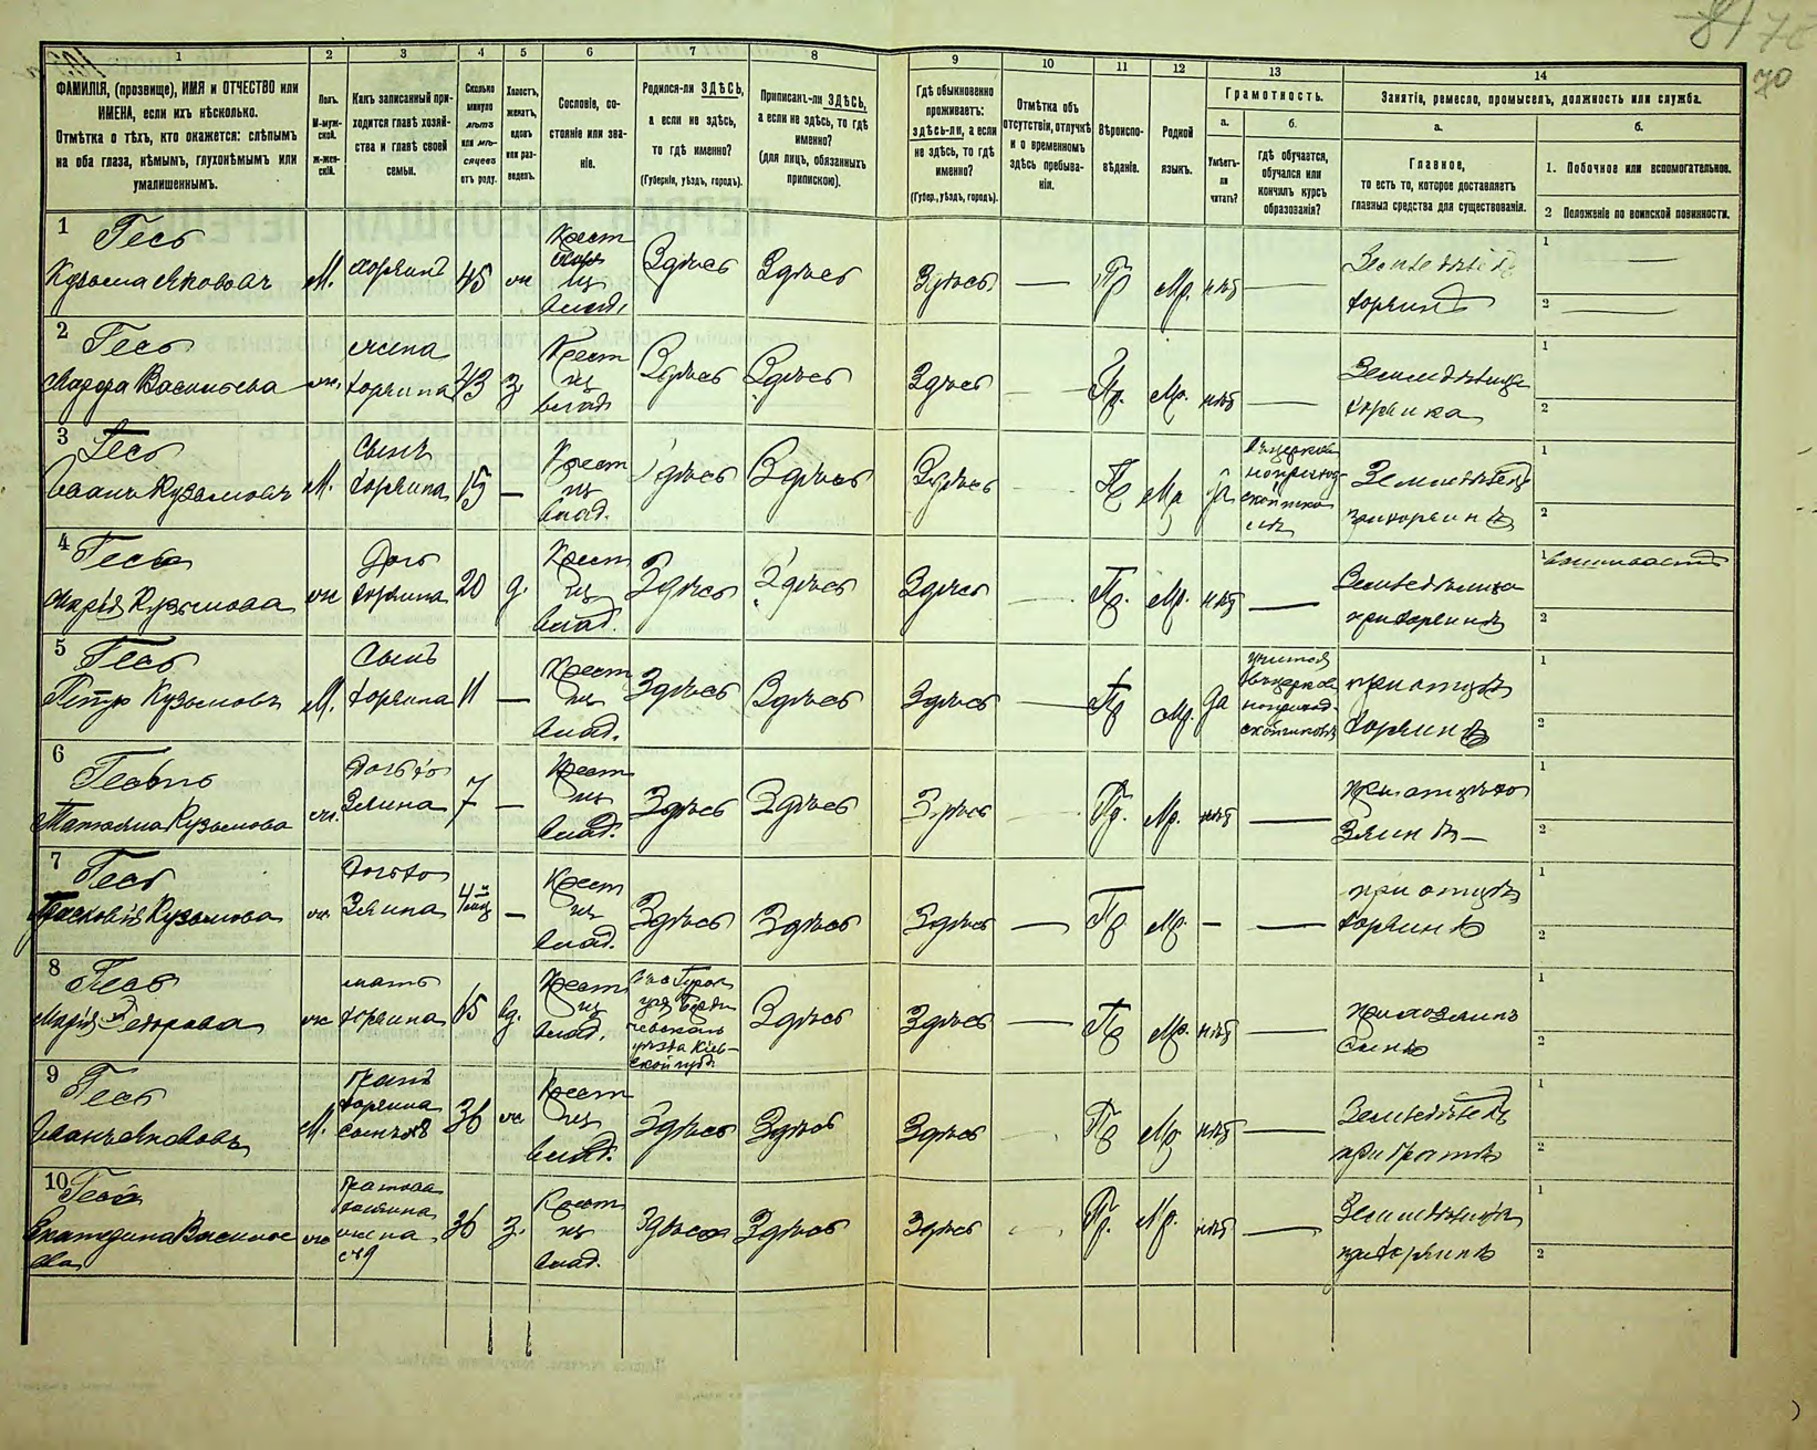 70
1 2 3 4 5 6 7 8 9 10 11 12 13 14
ФАМИЛІЯ, (прозвище), ИМЯ и ОТЧЕСТВО или
ИМЕНА, если ихъ нѣсколько.
Отмѣтка о тѣхъ, кто окажется: слѣпымъ
на оба глаза, нѣмымъ, глухонѣмымъ или
умалишеннымъ.
Полъ.
М-муж-
ской.
Ж-жен-
скій.
Какъ записанный при-
ходится главѣ хозяй-
ства и главѣ своей
семьи.
Сколько
минуло
лѣтъ
или мѣ-
сяцевъ
отъ роду.
Холостъ,
женатъ,
вдовъ
или раз-
веденъ.
Сословіе, со-
стояніе или зва-
ніе.
Родился-ли ЗДѢСЬ,
а если не здѣсь,
то гдѣ именно?
(Губернія, уѣздъ, городъ).
Приписанъ-ли ЗДѢСЬ,
а если не здѣсь, то гдѣ
именно?
(для лицъ, обязанныхъ
припискою).
Гдѣ обыкновенно
проживаетъ:
здѣсь-ли, а если
не здѣсь, то гдѣ
именно?
(Губер., уѣздъ, городъ).
Отмѣтка объ
отсутствіи, отлучкѣ
и о временномъ
здѣсь пребыва-
ніи.
Вѣроиспо-
вѣданіе.
Родной
языкъ.
Грамотность.
а.
Умѣетъ-
ли
читать?
б.
Гдѣ обучается,
обучался или
кончилъ курсъ
образованія?
Занятія, ремесло, промыселъ, должность или служба.
а.
Главное,
то есть то, которое доставляетъ
главныя средства для существованія.
б.
1. Побочное или вспомогательное.
2 Положеніе по воинской повинности.
1 Гесь
Кузьма Яковлевъ М. хозяинъ 45 ж Крест изъ влад. Здѣсь Здѣсь Здѣсь — Пр Мр. нѣт —
хозяинъ
1 —
2 —
2 Гесь
Марфа Васильева ж. жена хозяина 43 з. Крест из влад. Здѣсь Здѣсь Здѣсь — Пр. Мр. нѣт —
1
2
3 Гесь
Иванъ Кузьмовъ М. Сынъ хозяина 15 — Крест из влад. Здѣсь Здѣсь Здѣсь Пр Мр да
1
2
4 Гесь
Марія Кузьмова ж Дочь хозяина 20 д. Крест из влад. Здѣсь Здѣсь Здѣсь Пр. Мр. нѣт —
при хозяинѣ
1
2
5 Гесь
Петръ Кузьмовъ М. Сынъ хозяина 11 — Крест из влад. Здѣсь Здѣсь Здѣсь — Пр Мр. да
при отцѣ
хозяинѣ
1
2
6
Татьяна Кузьмова ж. Дочь хо
зяина 7 — Крест из влад. Здѣсь Здѣсь Здѣсь Пр. Мр. нѣт —
при отцѣ хо
зяинѣ —
1
2
7 Гесь
Прасковія Кузьмова ж Дочь хо
зяина — Крест из влад. Здѣсь Здѣсь Здѣсь — Пр Мр. — —
при отцѣ
хозяинѣ
1
2
8 Гесь
Марія Федорова ж мать хозяина 65 вд. Крест из влад.
уѣзда Кіев-
ской губ.
Здѣсь Здѣсь — Пр Мр. нѣт —
1
2
9 Гесь
Иванъ Яковлевъ М. братъ
хозяина
36 ж Крест из влад. Здѣсь Здѣсь Здѣсь Пр Мр нѣт —
при братѣ
1
2
10 Гесь
Екатерина Василье
ва ж
братова
хозяина
жена
36 з. Крест из влад. Здѣсь Здѣсь Здѣсь Пр. Мр. нѣт —
при хозяинѣ
1
2